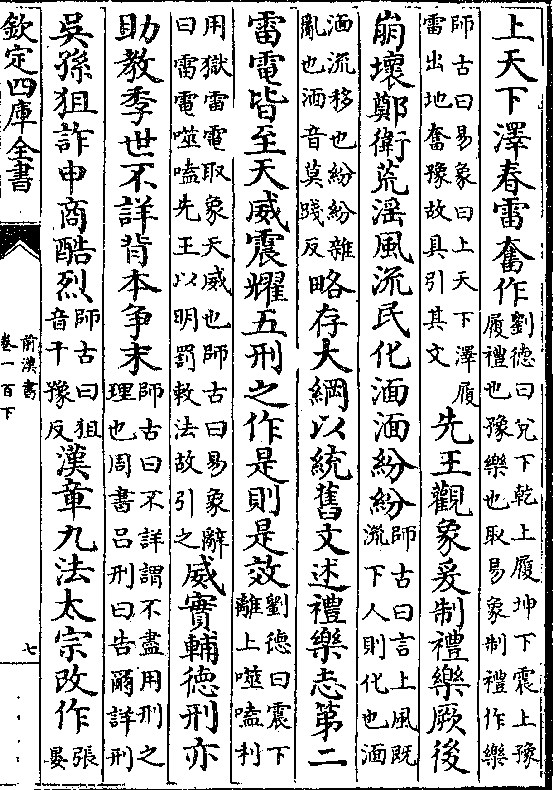 上天下澤春雷奮作劉德曰兌下乾上履坤下震上豫履禮也豫樂也取易象制禮作樂
師古曰易象曰上天下澤履雷出地奮豫故具引其文先王觀象爰制禮樂厥後
崩壞鄭衛荒淫風流民化湎湎紛紛師古曰言上風既流下人則化也湎
湎流移也紛紛雜亂也湎音莫踐反略存大綱以統舊文述禮樂志第二
雷電皆至天威震耀五刑之作是則是效劉德曰震下離上噬嗑利
用獄雷電取象天威也師古曰易象辭曰雷電噬嗑先王以明罰敕法故引之威實輔德刑亦
助教季世不詳背本爭末師古曰不詳謂不盡用刑之理也周書吕刑曰告爾詳刑
吳孫狙詐申商酷烈師古曰狙音千豫反漢章九法太宗改作張晏
欽定四庫全書
前漢書
卷一百下
七